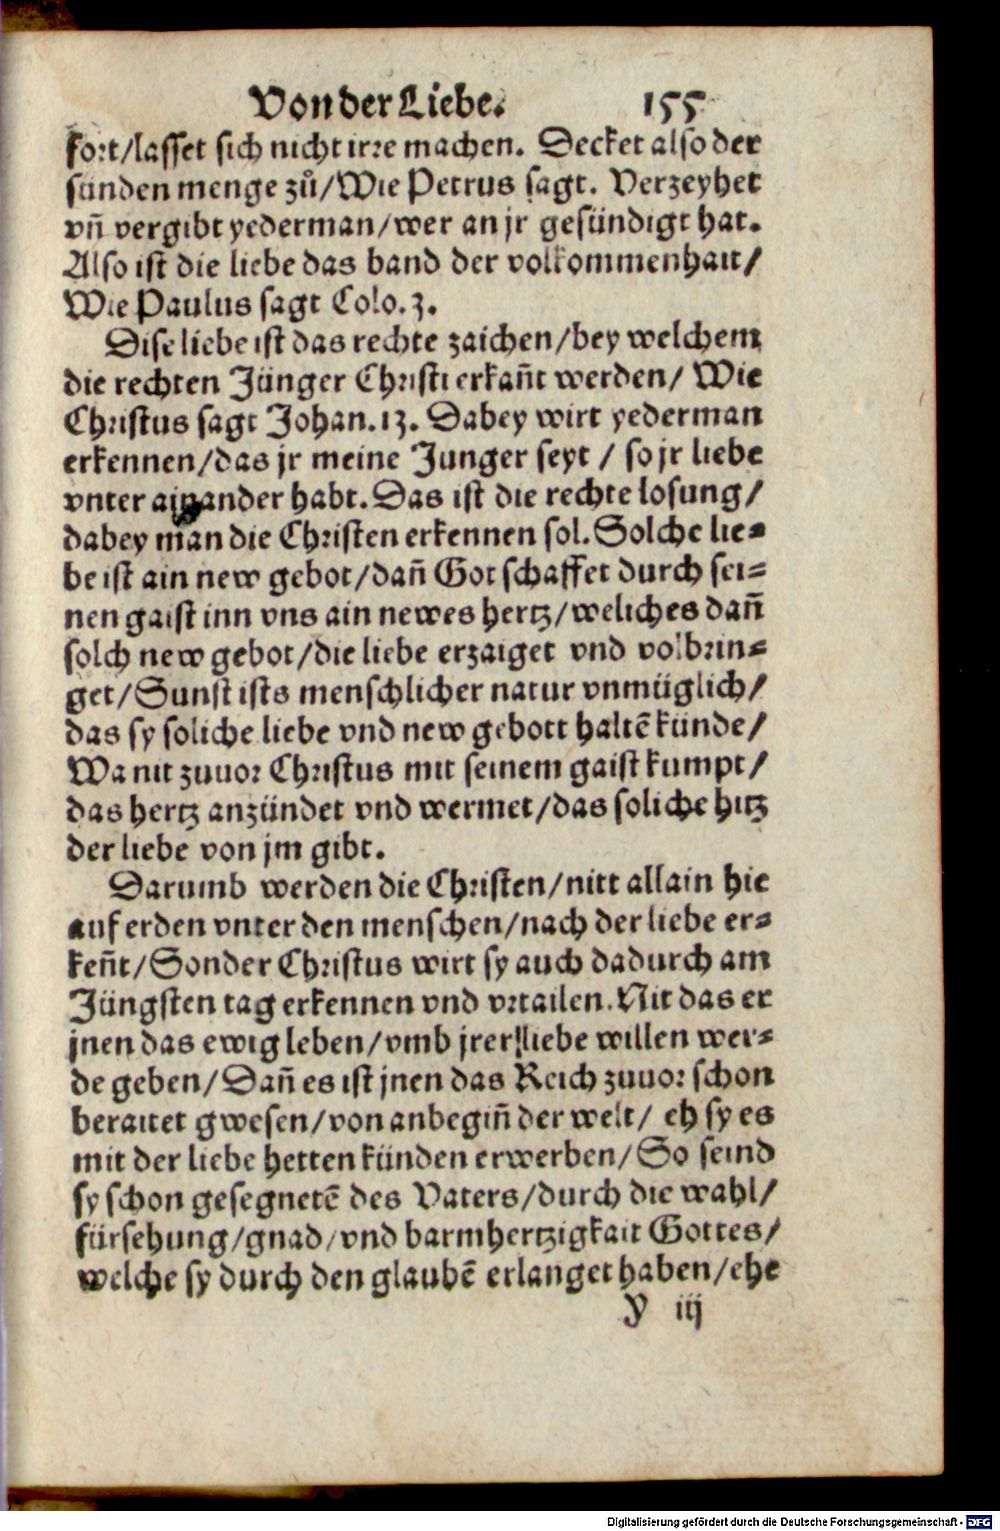 Von der Liebe. 155
fort/lasset sich nicht irre machen. Decket also der
sünden menge zů/Wie Petrus sagt. Verzeyhet
vñ vergibt yederman/wer an jr gesündigt hat.
Also ist die liebe das band der volkommenhait/
Wie Paulus sagt Colo.3.
Dise liebe ist das rechte zaichen/bey welchem
die rechten Jünger Christi erkañt werden/ Wie
Christus sagt Johan.13. Dabey wirt yederman
erkennen/das jr meine Junger seyt / so jr liebe
vnter ainander habt. Das ist die rechte losung/
dabey man die Christen erkennen sol. Solche lie-
be ist ain new gebot/dañ Got schaffet durch sei-
nen gaist inn vns ain newes hertz/weliches dañ
solch new gebot/die liebe erzaiget vnd volbrin-
get/Sunst ists menschlicher natur vnmüglich/
das sy soliche liebe vnd new gebott haltē künde/
Wa nit zuuor Christus mit seinem gaist kumpt/
das hertz anzündet vnd wermet/das soliche hitz
der liebe von jm gibt.
Darumb werden die Christen/nitt allain hie
auf erden vnter den menschen/nach der liebe er-
keñt/Sonder Christus wirt sy auch dadurch am
Jüngsten tag erkennen vnd vrtailen. Nit das er
jnen das ewig leben/vmb jrer liebe willen wer-
de geben/Dañ es ist jnen das Reich zuuor schon
beraitet gwesen/von anbegiñ der welt/ eh sy es
mit der liebe hetten künden erwerben/So seind
sy schon gesegnetē des Vaters/durch die wahl/
fürsehung/gnad/vnd barmhertzigkait Gottes/
welche sy durch den glaubē erlanget haben/ehe
Y iij
Digitalisierung gefördert durch die Deutsche Forschungsgemeinschaft - DFG